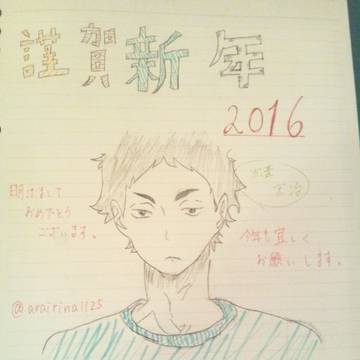 謹賀新年
2016
明けまして
おめでとう
ございます。
今年も宜しく
お願いします。
@arairina1125